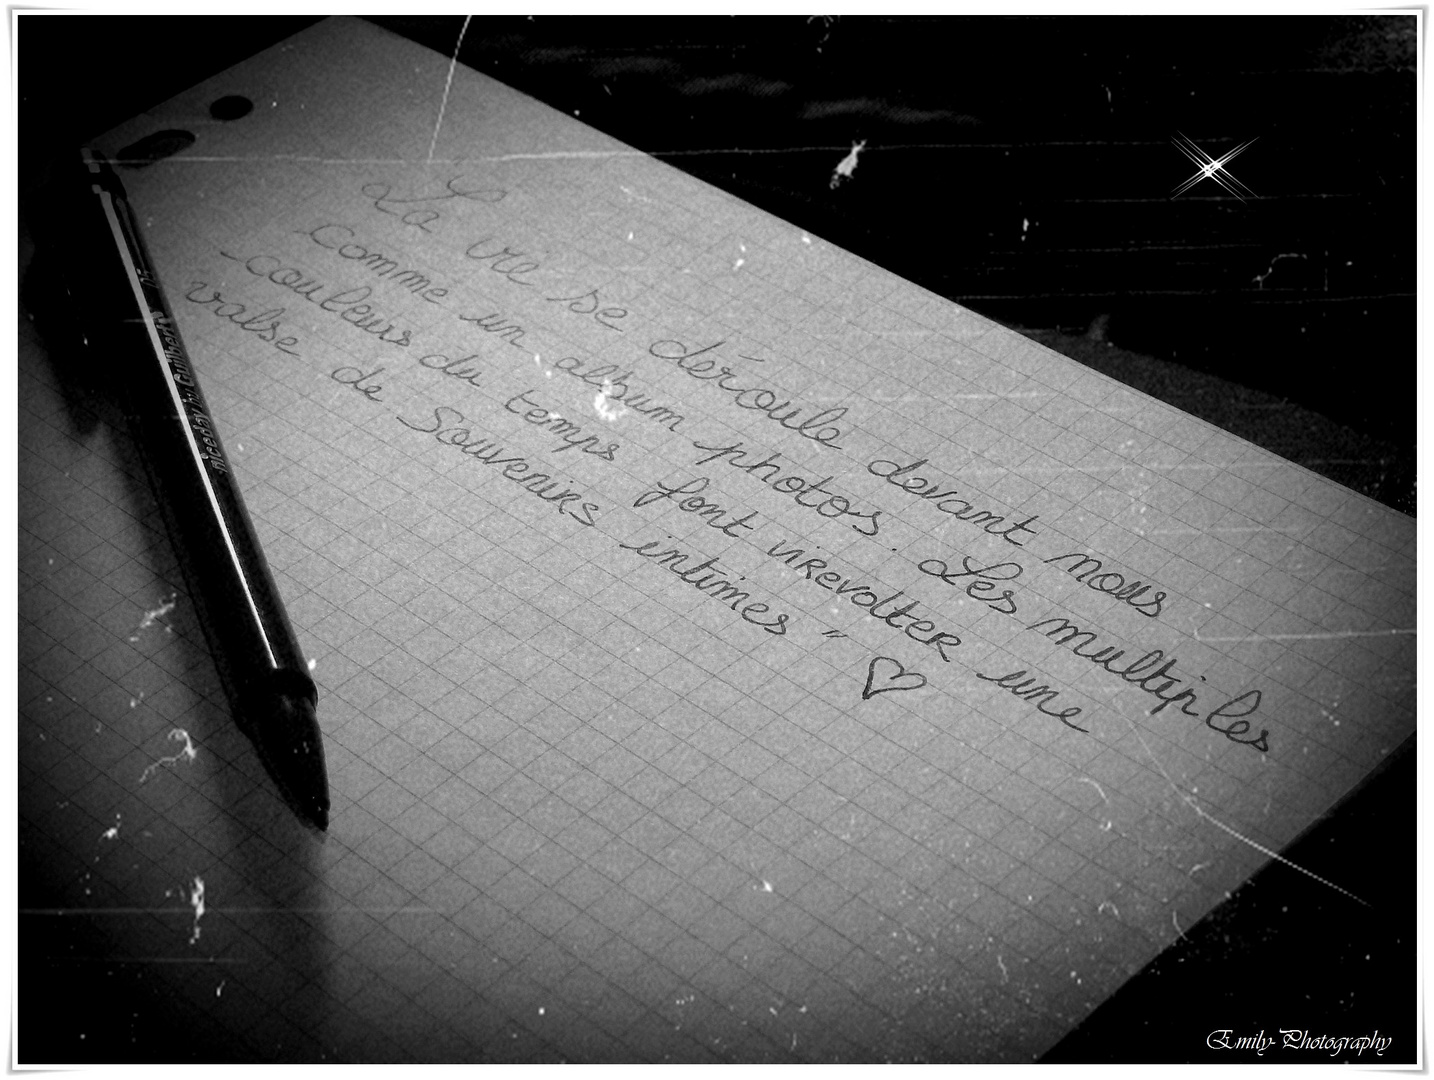 La vie se déroule devant nous
comme un album photos. Les multiples
couleurs du temps font virevolter une
valse de Souvenirs intimes "
niceday by Guilbert
Emily-Photography